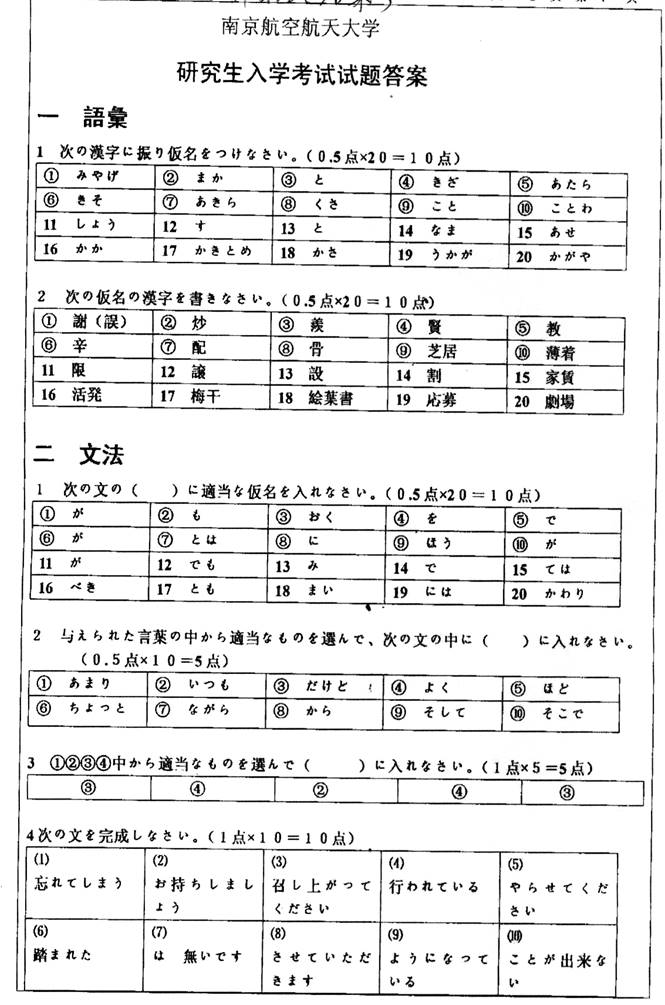 南京航空航天大学
研究生入学考试试题答案
一 語彙
1 次の漢字に振り仮名をつけなさい。(0.5点×20=10点)
① みやげ ② まか ③ と ④ きざ ⑤ あたら
⑥ きそ ⑦ あきら ⑧ くさ ⑨ こと ⑩ ことわ
11 しょう 12 す 13 と 14 なま 15 あせ
16 かか 17 かきとめ 18 かさ 19 うかが 20 かがや
2 次の仮名の漢字を書きなさい。(0.5点×20=10点)
① 謝(誤) ② 炒 ③ 羨 ④ 賢 ⑤ 教
⑥ 辛 ⑦ 配 ⑧ 骨 ⑨ 芝居 ⑩ 薄着
11 限 12 譲 13 設 14 割 15 家賃
16 活発 17 梅干 18 絵葉書 19 応募 20 劇場
二 文法
1 次の文の( )に適当な仮名を入れなさい。(0.5点×20=10点)
① が ② も ③ おく ④ を ⑤ で
⑥ が ⑦ とは ⑧ に ⑨ ほう ⑩ が
11 が 12 でも 13 み 14 で 15 ては
16 べき 17 とも 18 まい 19 には 20 かわり
2 与えられた言葉の中から適当なものを選んで、次の文の中に( )に入れなさい。
(0.5点×10=5点)
① あまり ② いつも ③ だけど ④ よく ⑤ ほど
⑥ ちょっと ⑦ ながら ⑧ から ⑨ そして ⑩ そこで
3 ①②③④中から適当なものを選んで( )に入れなさい。(1点×5=5点)
③ ④ ② ④ ③
4次の文を完成しなさい。(1点×10=10点)
(1) (2) (3) (4) (5)
忘れてしまう お持ちしまし 召し上がって 行われている やらせてくだ
ょう ください さい
(6) (7) (8) (9) (10)
踏まれた は 無いです させていただ ようになって ことが出来な
きます いる い